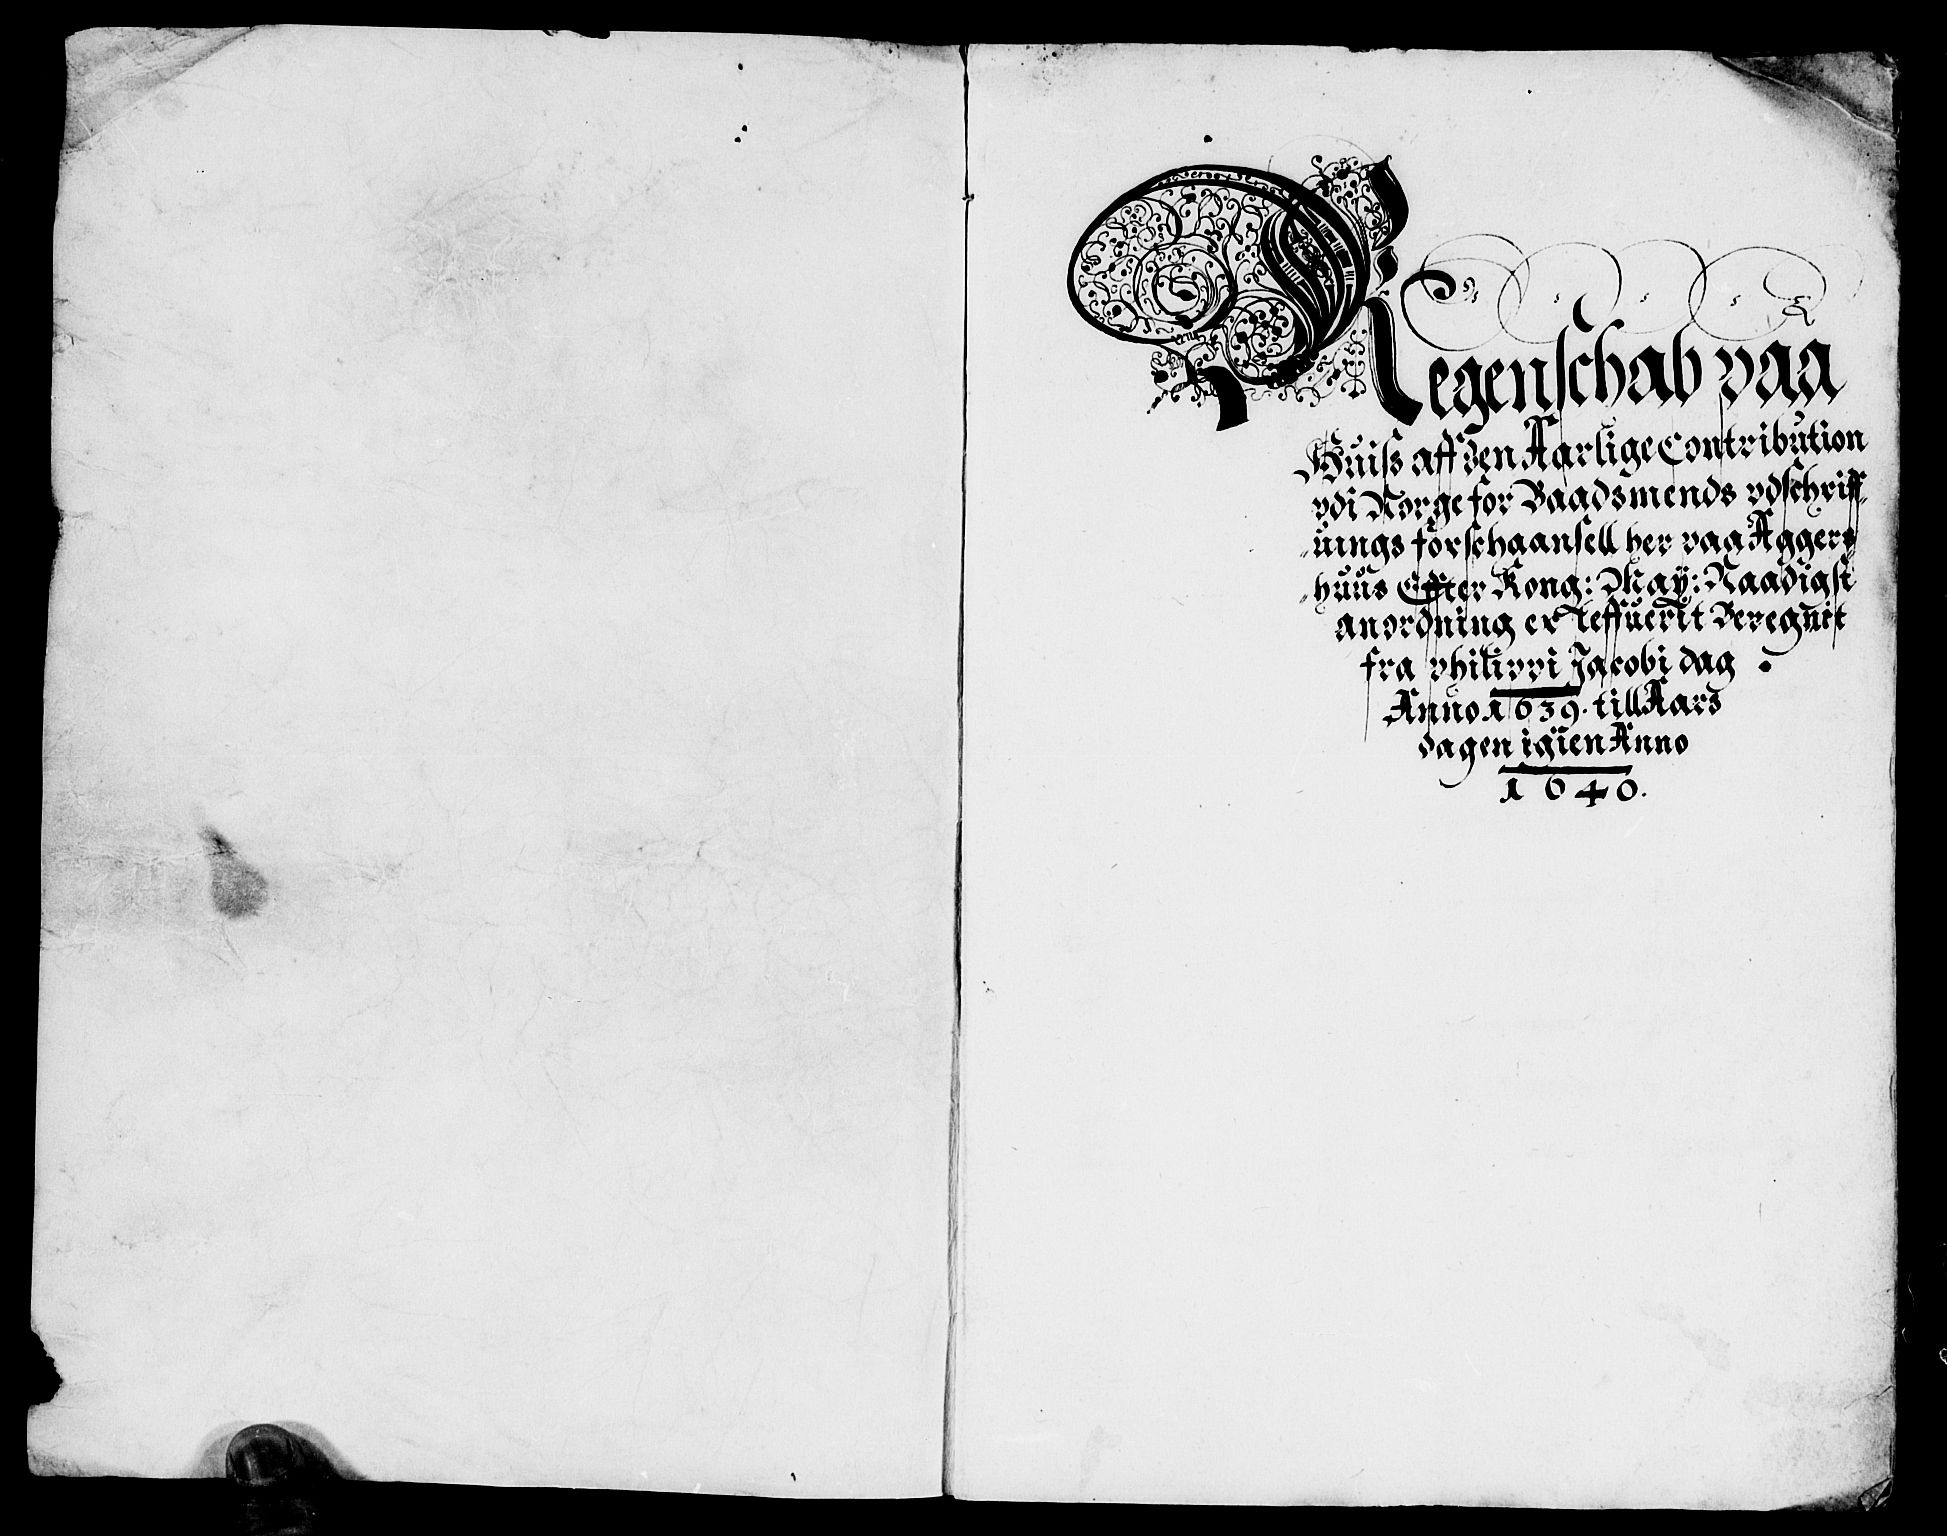 Regenschab paa
Huiss aff den Aarlige Contribution
vdi Norge for Baadsmends vdschriff-
-uings forschaansell her paa Aggers
-huus Effter Kong: May: Naadigst
anordning er leffuerit Beregnit
fra Philippi Jacobi dag
Anno 1639. till Aars
dagen igien Anno
1640.